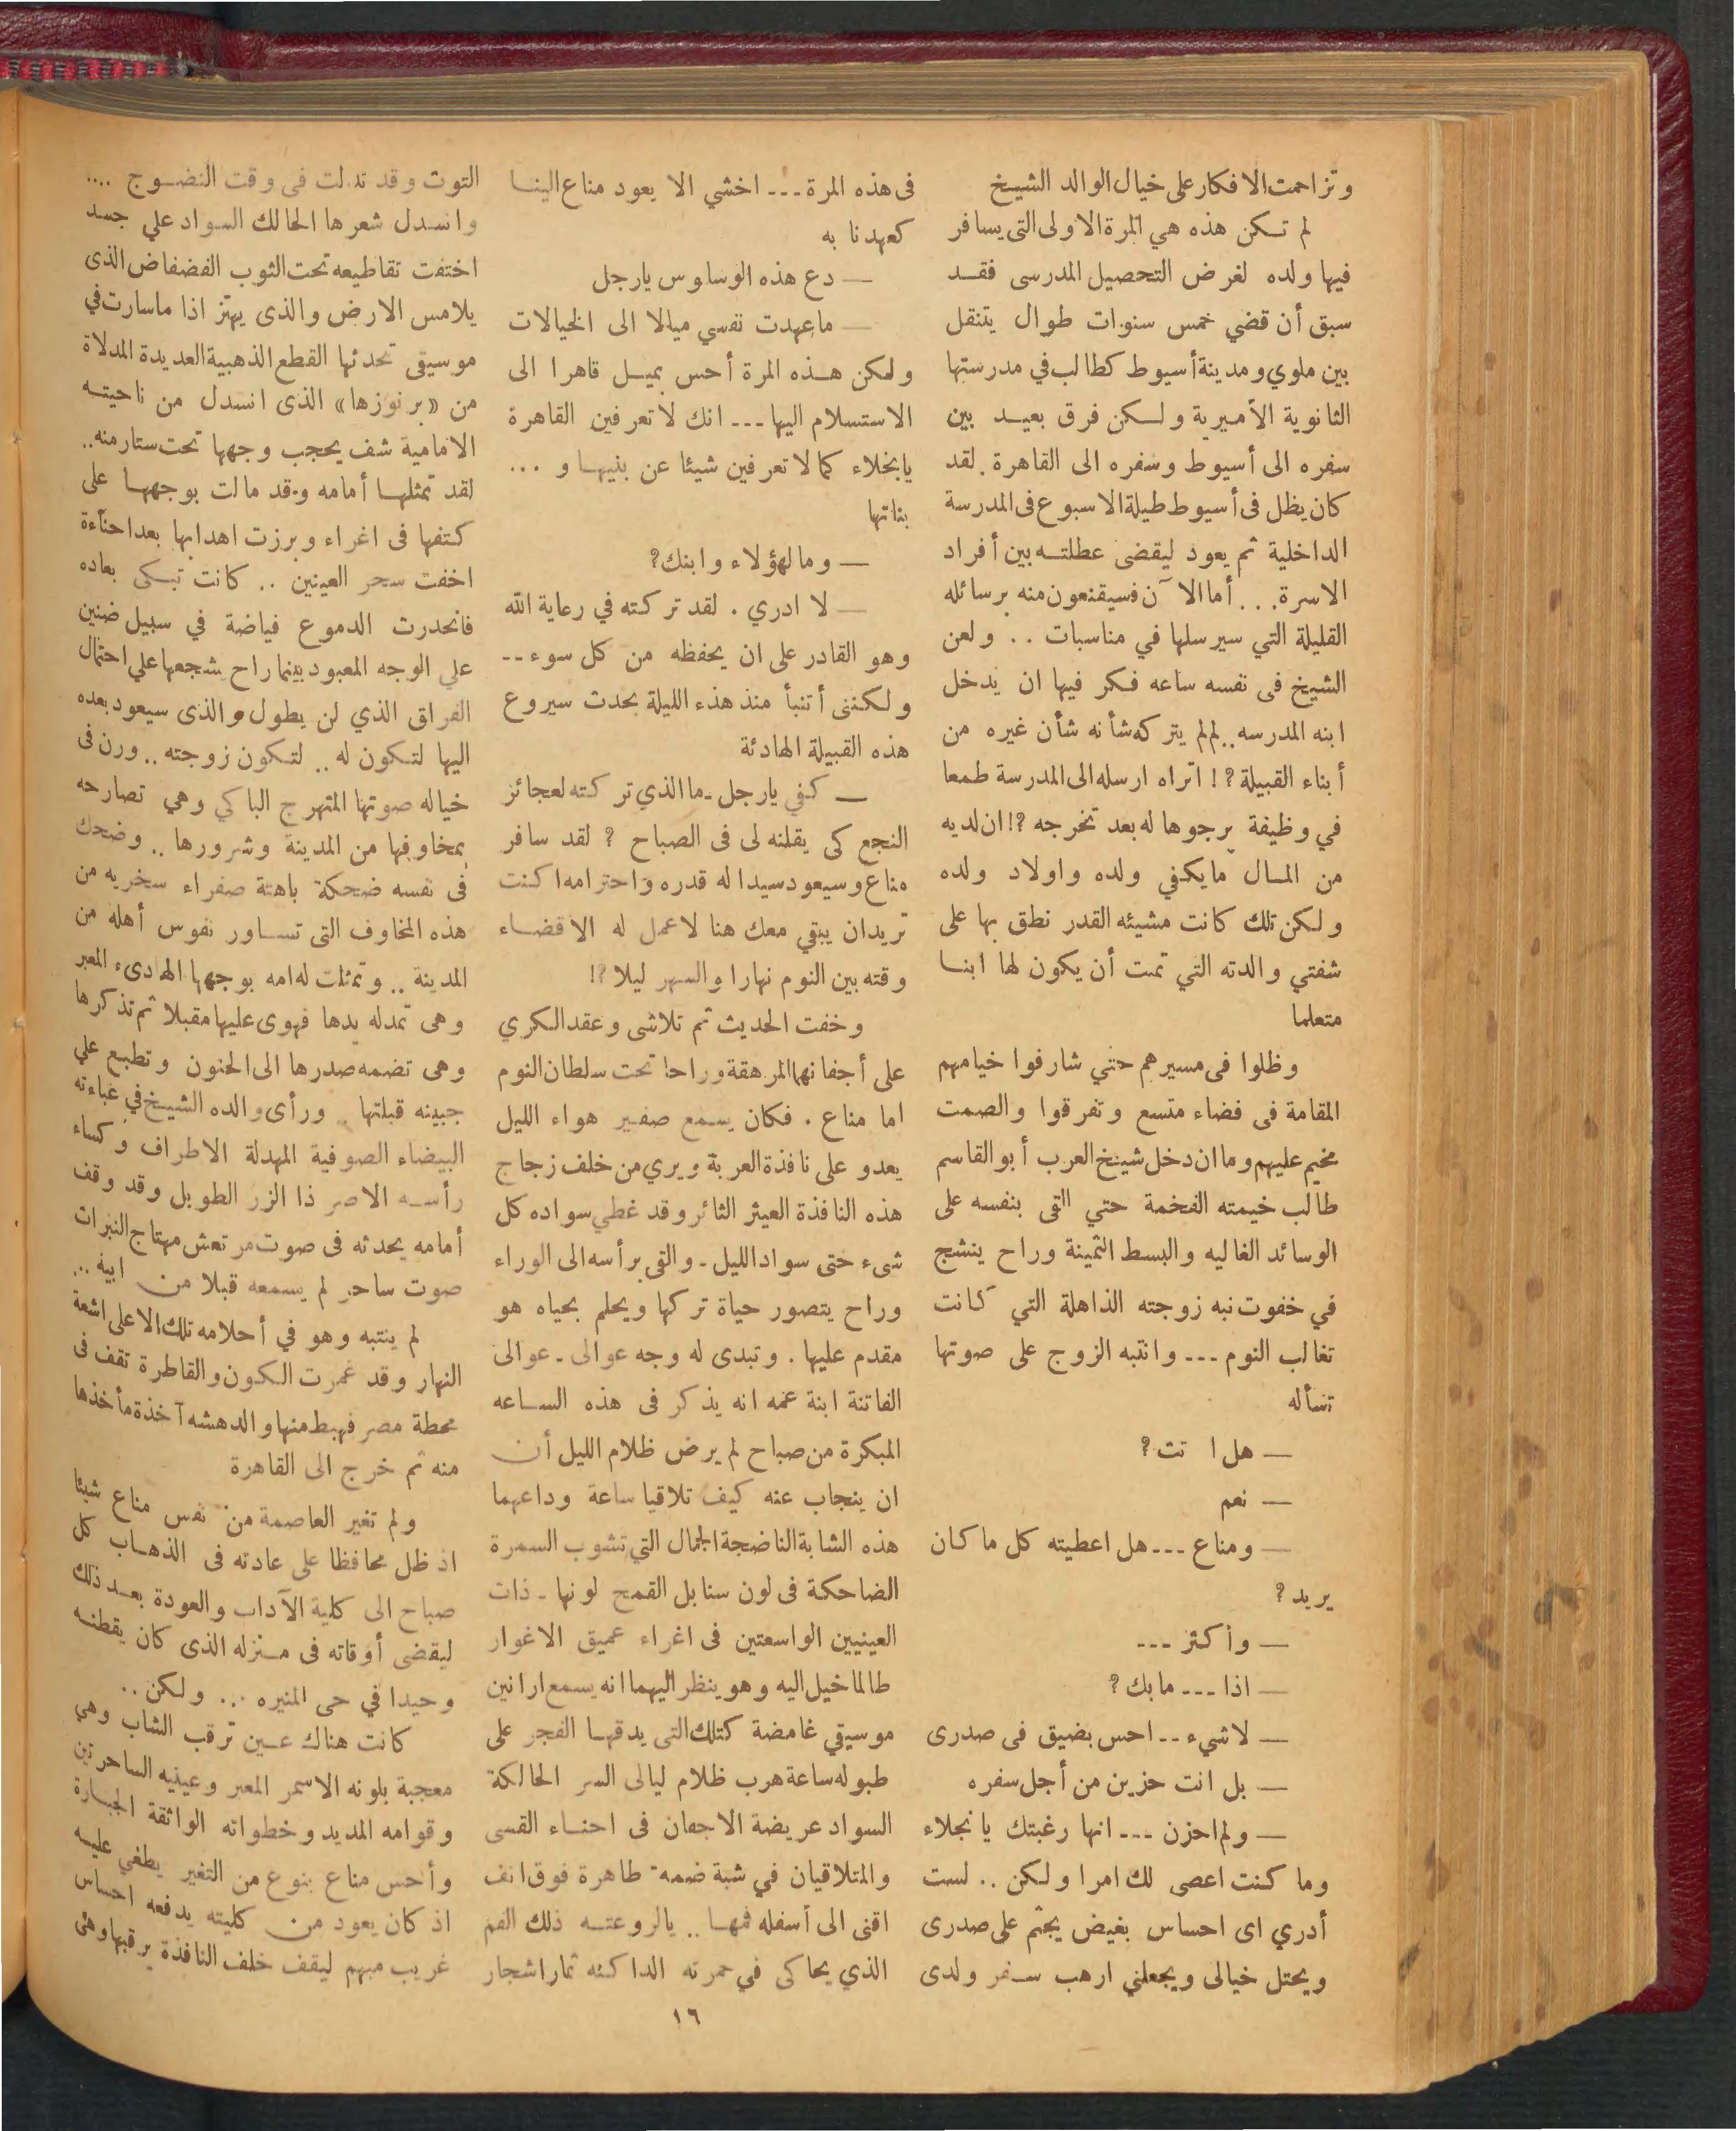 وتزاحمت الافكار على خيال الوالد الشيخ
لم تكن هذه هي المرة الاولى التى يسافر
فيها ولده لغرض التحصيل المدرسى فقد
سبق أن قضي خمس سنوات طوال يتنقل
بين ملوي ومدينة أسيوط كطالب في مدرستها
الثانوية الأميرية ولكن فرق بعيد بين
سفره الى أسيوط وسفره الى القاهرة . لقد
كان يظل فى أسيوط طيلة الاسبوع فى المدرسة
الداخلية ثم يعود ليقضى عطلته بين أفراد
الاسرة . . . أما الآن فسيقنعون منه برسائله
القليلة التي سيرسلها في مناسبات . . ولعن
الشيخ فى نفسه ساعه فكر فيها ان يدخل
ابنه المدرسه .. لم لم يتركه شأنه شأن غيره من
أبناء القبيلة ؟ ! اتراه ارسله الى المدرسة طمعا
في وظيفة يرجوها له بعد تخرجه ؟! ان لديه
من المال ما يكفي ولده واولاد ولده
ولكن تلك كانت مشيئه القدر نطق بها على
شفتي والدته التي تمت أن يكون لها ابنا
متعلما
وظلوا فى مسيرهم حتي شارفوا خيامهم
المقامة فى فضاء متسع وتفرقوا والصمت
مخيم عليهم وما ان دخل شيخ العرب أبو القاسم
طالب خيمته الفخمة حتي القى بنفسه على
الوسائد الغاليه والبسط الثمينة وراح ينشج
في خفوت نبه زوجته الذاهلة التي كانت
تغالب النوم --- وانتبه الزوج على صوتها
تسأله
— هل ا تت ؟
— نعم
— ومناع --- هل اعطيته كل ما كان
يريد ؟
— وأكثر ---
— اذا --- مابك ؟
— لاشيء -- احس بضيق فى صدرى
— بل انت حزين من أجل سفره
— ولم احزن --- انها رغبتك يا نجلاء
وما كنت اعصى لك امرا ولكن . . لست
أدري اى احساس بغيض يجثم على صدرى
ويحتل خيالى ويجعلني ارهب سفر ولدى
فى هذه المرة --- اخشي الا يعود مناع الينا
كعهدنا به
— دع هذه الوساوس يارجل
— ماعهدت نفسي ميالا الى الخيالات
ولكن هذه المرة أحس بميل قاهرا الى
الاستسلام اليها --- انك لا تعرفين القاهرة
يانجلاء كما لا تعرفين شيئا عن بنيها و ...
بناتها
— وما لهؤلاء وابنك ؟
— لا ادري . لقد تركته في رعاية الله
وهو القادر على ان يحفظه من كل سوء --
ولكننى أتنبأ منذ هذه الليلة بحدث سيروع
هذه القبيلة الهادئة
— كفي يارجل - ما الذي تركته لعجائز
النجع كى يقلنه لى فى الصباح ؟ لقد سافر
مناع وسيعود سيدا له قدره واحترامه اكنت
تريدان يبقي معك هنا لا عمل له الا قضاء
وقته بين النوم نهارا والسهر ليلا ؟!
وخفت الحديث ثم تلاشى وعقد الكري
على أجفانهما المرهقة وراحا تحت سلطان النوم
اما مناع . فكان يسمع صفير هواء الليل
يعدو على نافذة العربة ويري من خلف زجاج
هذه النافذة العيثر الثائر وقد غطي سواده كل
شىء حتى سواد الليل - والقى برأسه الى الوراء
وراح يتصور حياة تركها ويحلم بحياه هو
مقدم عليها . وتبدى له وجه عوالى - عوالى
الفاتنة ابنة عمه انه يذكر فى هذه الساعه
المبكرة من صباح لم يرض ظلام الليل أن
ان ينجاب عنه كيف تلاقيا ساعة وداعهما
هذه الشابة الناضجة الجمال التي تشوب السمرة
الضاحكة فى لون سنابل القمح لونها - ذات
العينيين الواسعتين فى اغراء عميق الاغوار
طالما خيل اليه وهو ينظر اليهما انه يسمع ارانين
موسيقي غامضة كتلك التى يدقها الفجر على
طبوله ساعة هرب ظلام ليالى السر الحالكة
السواد عريضة الاجفان فى احناء القسى
والمتلاقيان في شبة ضمه طاهرة فوق انف
اقنى الى أسفله فمها .. يالروعته ذلك الفم
الذي يحاكى في حمرته الداكنه ثمار اشجار
التوت وقد تدلت فى وقت النضوج ....
وانسدل شعرها الحالك السواد علي جسد
اختفت تقاطيعه تحت الثوب الفضفاض الذى
يلامس الارض والذى يهتز اذا ما سارت في
موسيقى تحدثها القطع الذهبية العديدة المدلاة
من « برنوزها » الذى انسدل من ناحيته
الامامية شف يحجب وجهها تحت ستار منه ..
لقد تمثلها أمامه وقد مالت بوجهها على
كتفها فى اغراء وبرزت اهدابها بعد احناءة
اخفت سحر العينين .. كانت تبكى بعاده
فانحدرت الدموع فياضة في سبيل ضنين
علي الوجه المعبود بينما راح يشجعها علي احتمال
الفراق الذي لن يطول والذى سيعود بعده
اليها لتكون له .. لتكون زوجته .. ورن فى
خياله صوتها المتهرج الباكي وهي تصارحه
بمخاوفها من المدينة وشرورها .. وضحك
فى نفسه ضحكة باهتة صفراء سخريه من
هذه المخاوف التى تساور نفوس أهله من
المدينة .. وتمثلت له امه بوجهها الهادىء المعبر
وهى تمد له يدها فهوى عليها مقبلا ثم تذكرها
وهى تضمه صدرها الى الحنون وتطبع علي
جبينه قبلتها .. ورأى والده الشيخ في عباءته
البيضاء الصوفية المهدلة الاطراف وكساء
رأسه الاصر ذا الزر الطويل وقد وقف
أمامه يحدثه فى صوت مرتعش مهتاج النبرات
صوت ساحر لم يسمعه قبلا من ابيه ..
لم ينتبه وهو في أحلامه تلك الا على اشعة
النهار وقد غمرت الكون والقاطرة تقف فى
محطة مصر فهبط منها والدهشه آخذة مأخذها
منه ثم خرج الى القاهرة
ولم تغير العاصمة من نفس مناع شيئا
اذ ظل محافظا على عادته فى الذهاب كل
صباح الى كلية الآداب والعودة بعد ذلك
ليقضى أوقاته فى منزله الذى كان يقطنه
وحيدا في حى المنيره ... ولكن ..
كانت هناك عين ترقب الشاب وهي
معجبة بلونه الاسمر المعبر وعينيه الساحرتين
وقوامه المديد وخطواته الواثقة الجبارة
وأحس مناع بنوع من التغير يطغي عليه
اذ كان يعود من كليته يدفعه احساس
غريب مبهم ليقف خلف النافذة يرقبها وهى
١٦